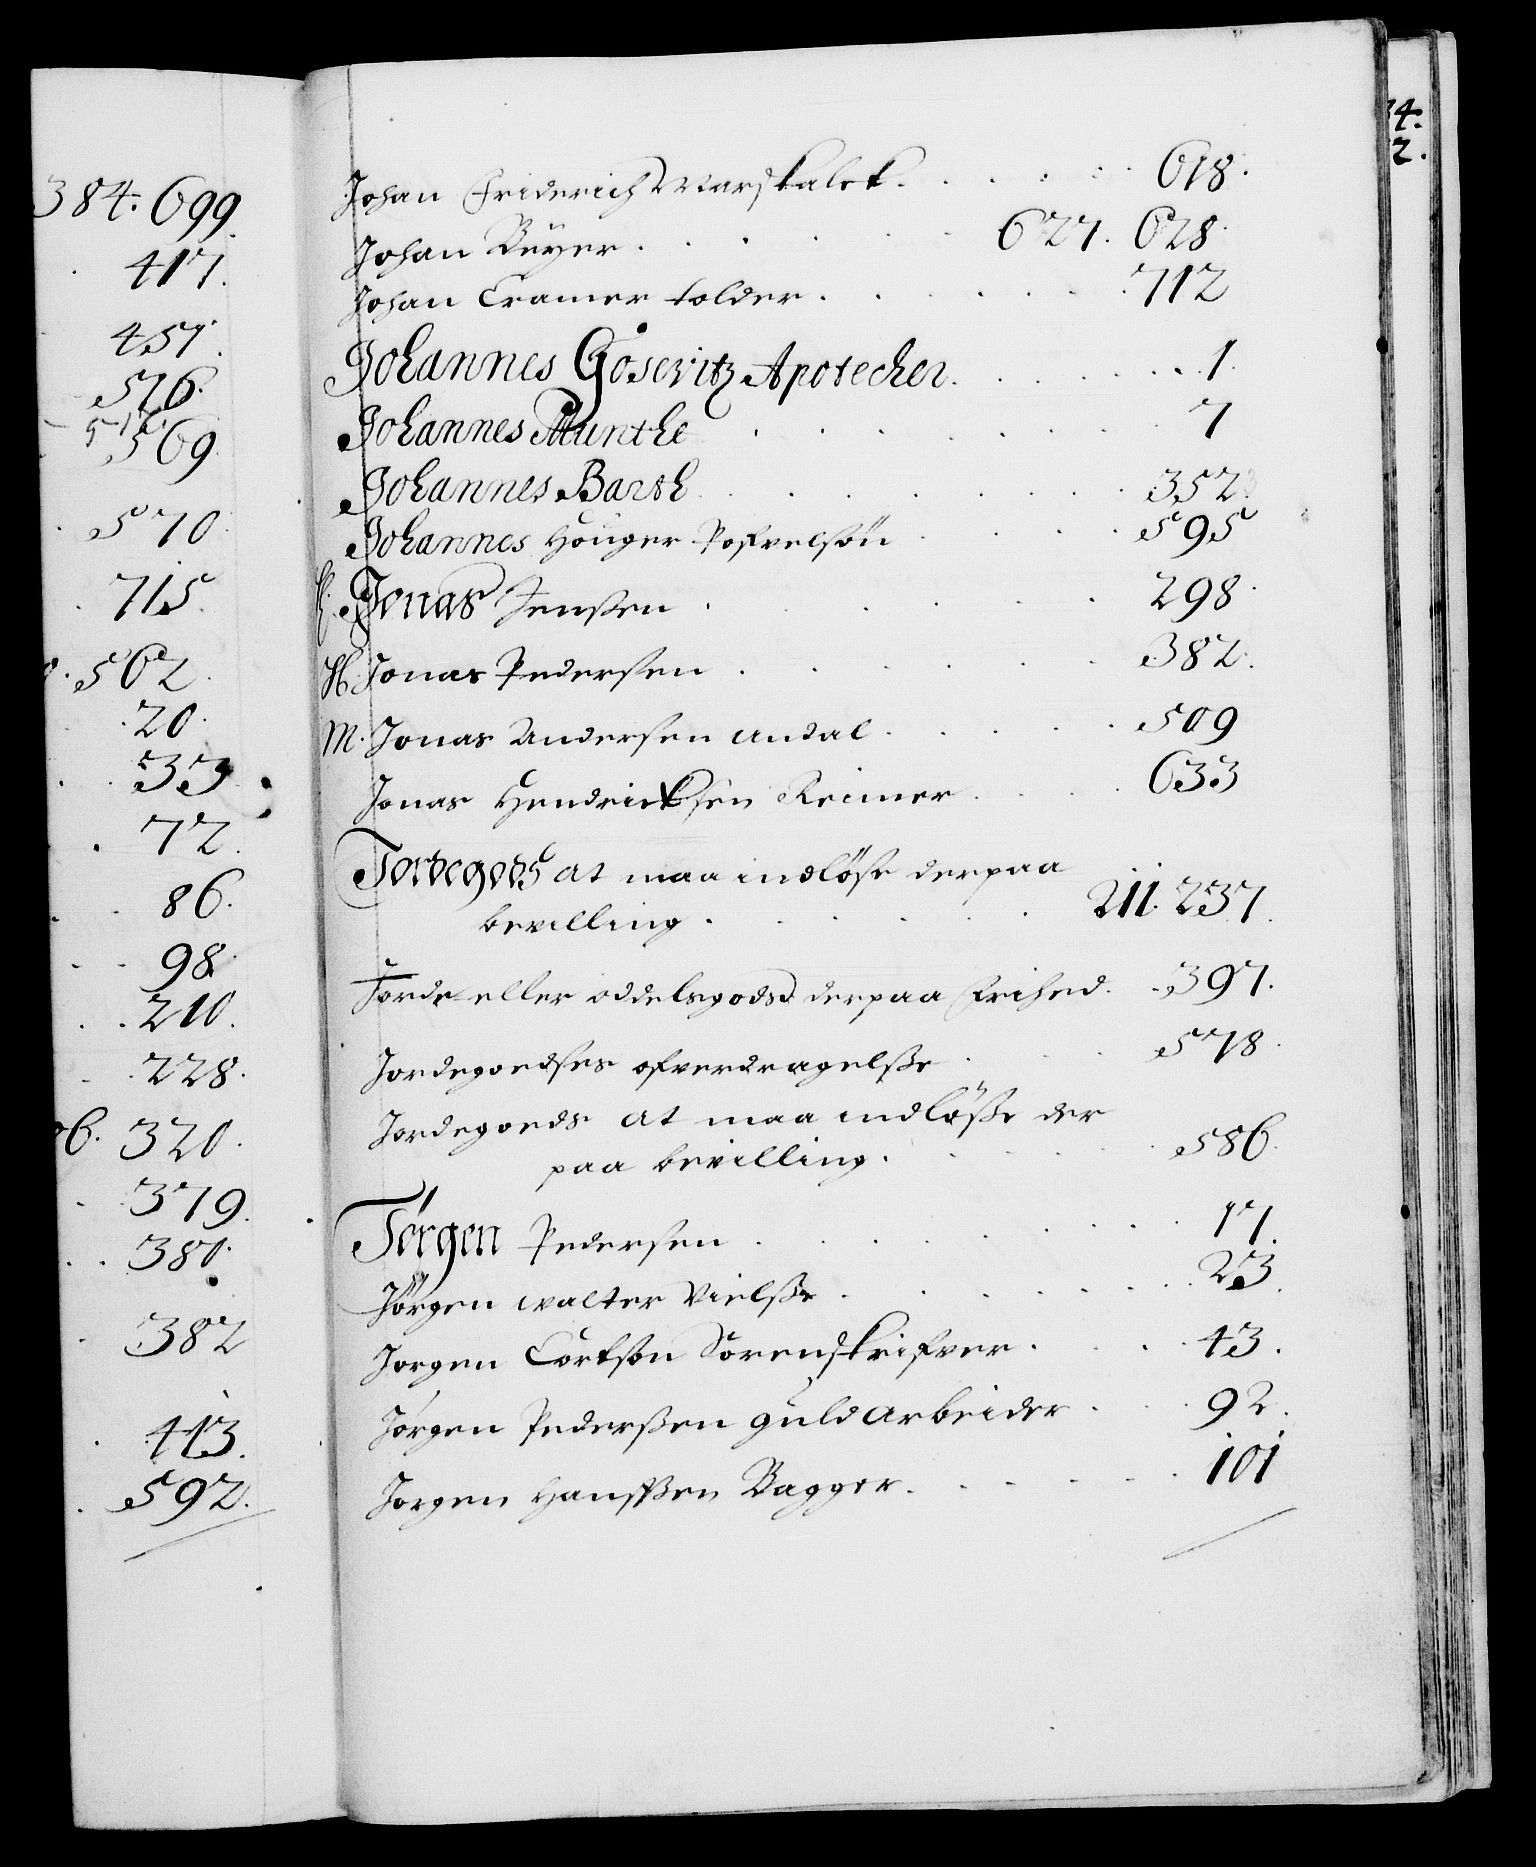 384. 699.
417.
457.
576.
569
570.
715.
562
20.
33
72.
86.
98.
210.
228.
320.
379.
380.
382
443.
592.
Johan Friderich Marskalck. 618.
Johan Reyer. 627. 628.
Johan Cramer tolder. 712
Johannes Gosevitz Apotecher. 1.
Johannes Munthe 7
Johannes Barth 352
Johannes Höuger Pofvelsön 595
H. Jonas Jenssen 298.
H. Jonas Pedersen 382.
M. Jonas Andersen Undal. 509
Jonas Hendricksen Reimer 633
Jordegods at maa indlöse derpaa
bevilling. 211. 237.
Jorde eller oddelsgodsd derpaa Frihed. 397.
Jordegoedses ofverdragelsse 578.
Jordegoeds at maa indlösse der
paa bevilling. 586.
Jörgen Pedersen 17.
Jörgen Walter Vielsse 23.
Jorgen Cortson Sorenskrifver. 43.
Jörgen Pederssen Guldarbeider 92.
Jorgen Hansssen Bagger. 101
34.
2.